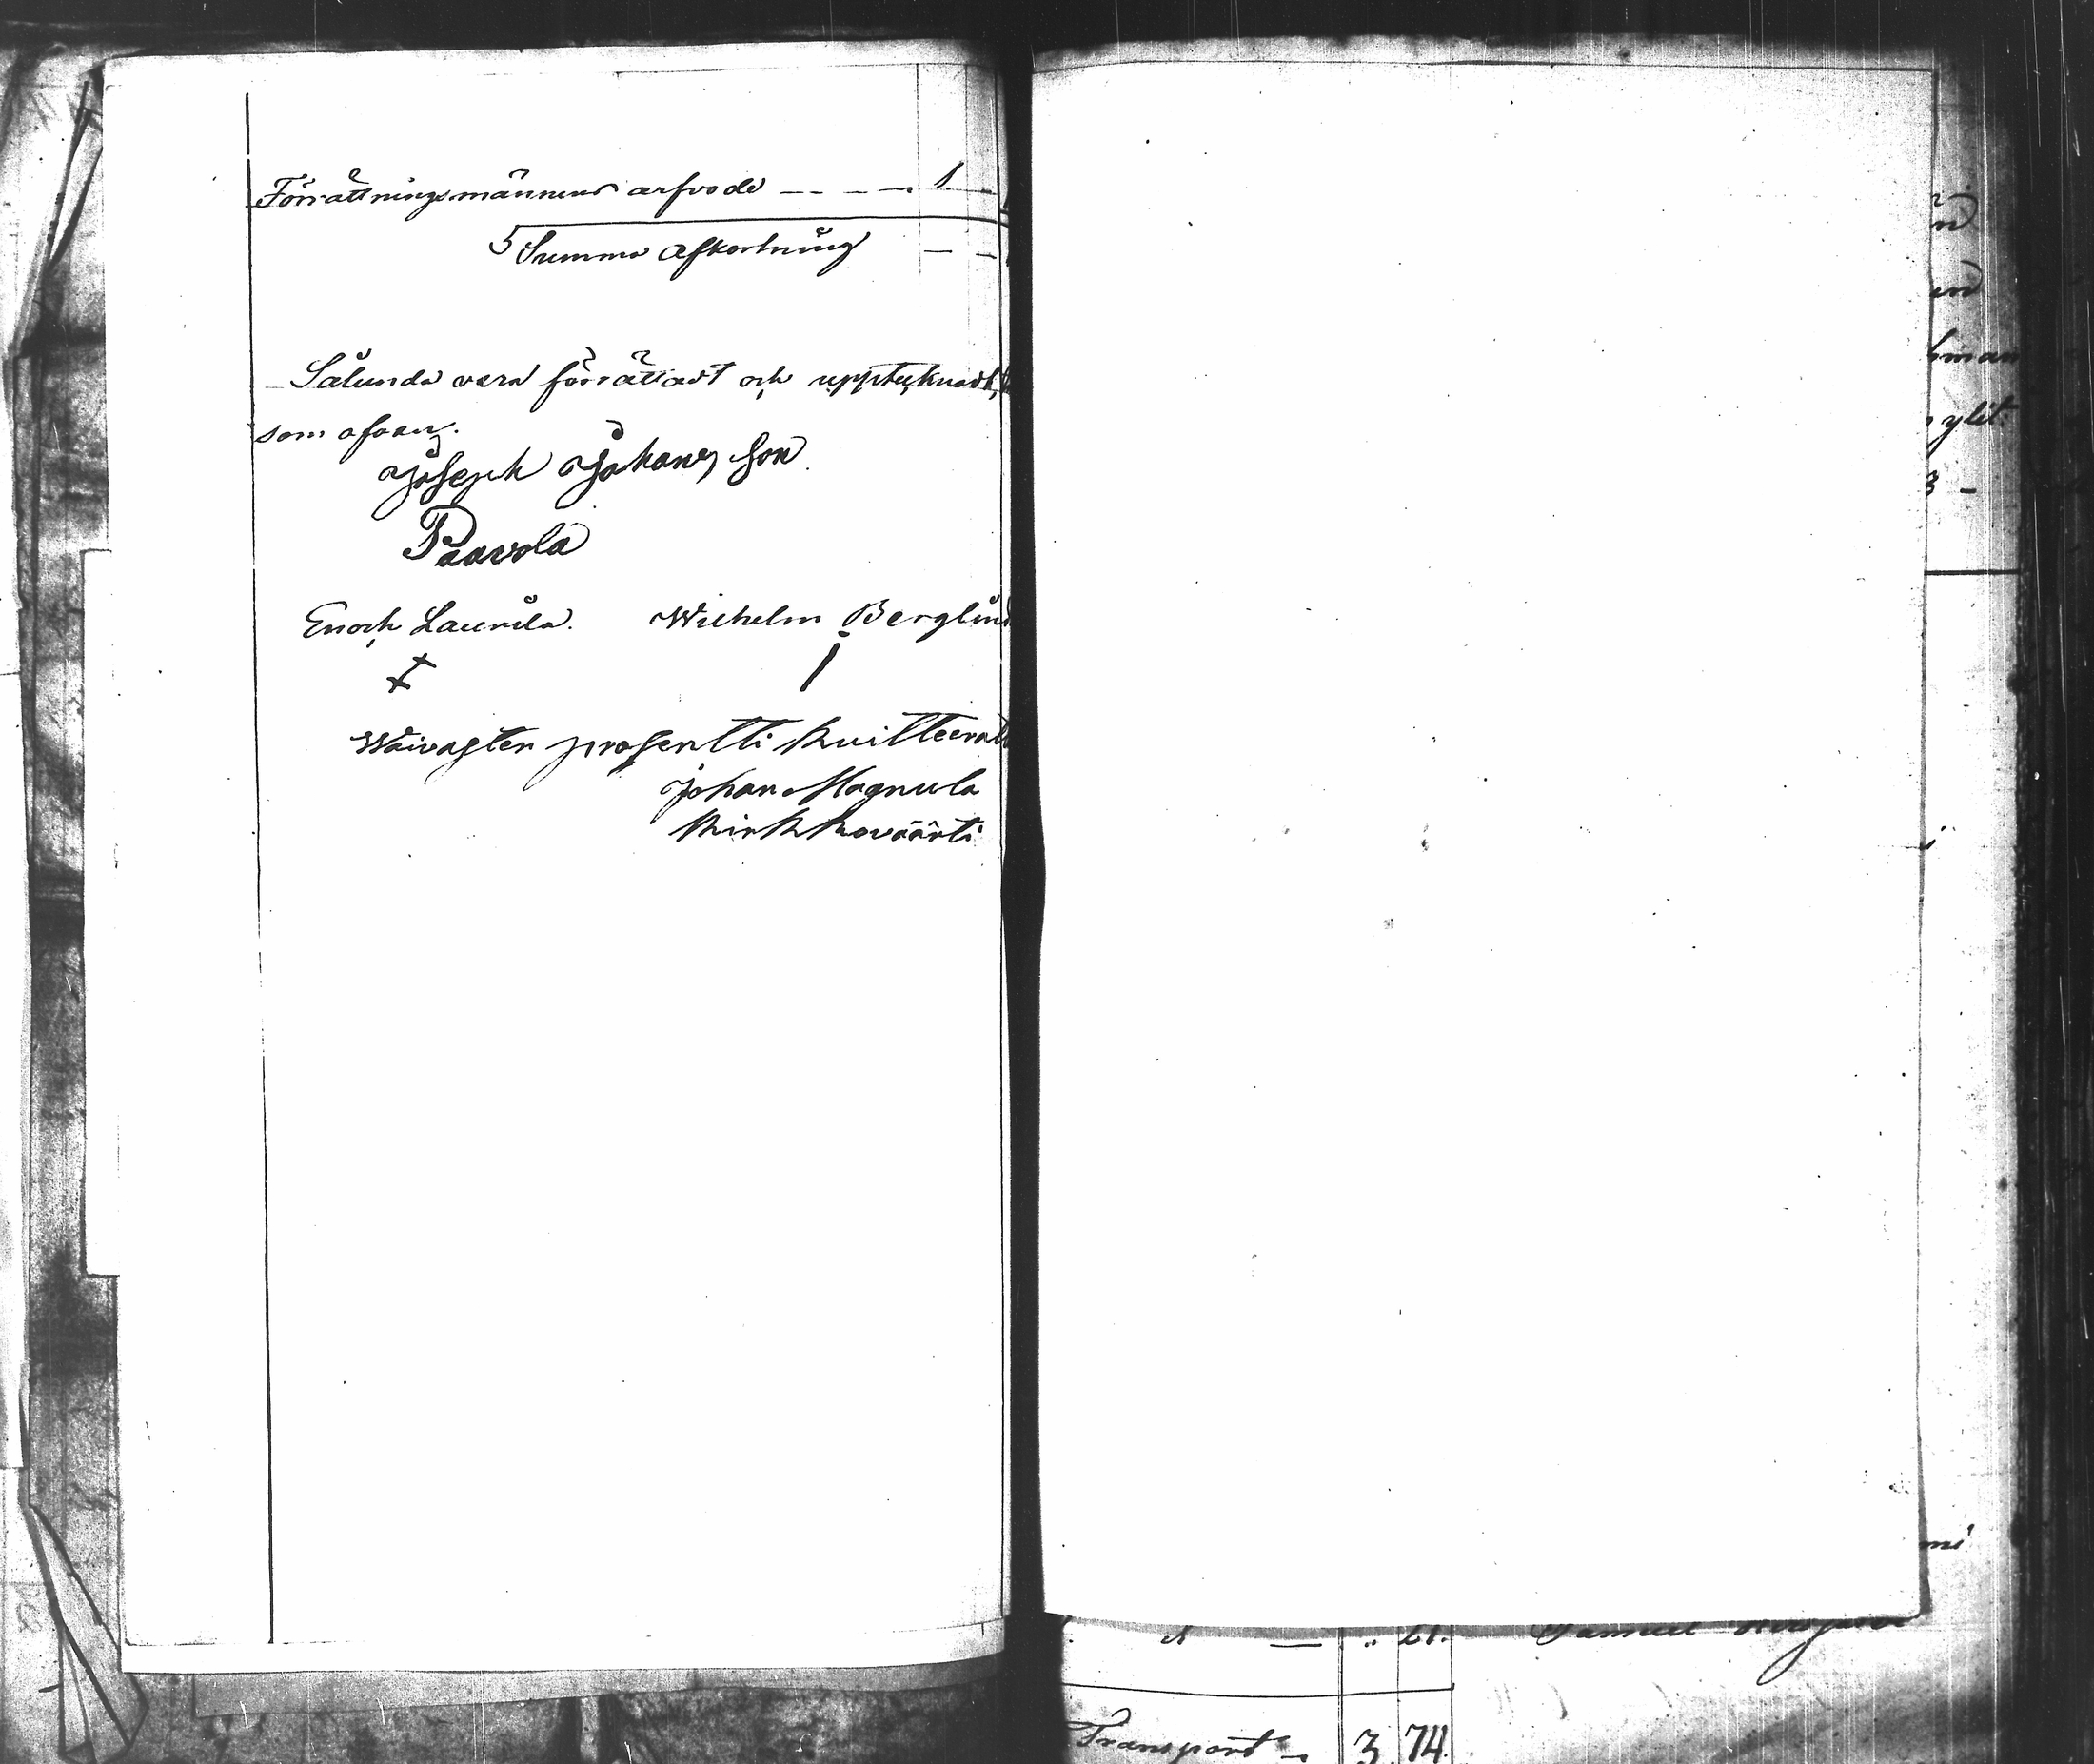 Förrättningsmännens arfvode - - - - 1 -
Summa afkortning - -
Sålunda vara förrättadt och upptecknadt,
som ofvan.
Joseph Johans son
Paavola
Enoch Laurila. Wilhelm Berglund
Waivasten prosentti kvitteerat
Johan Magnula
Kirkkoväärti
man
ylit.
3 -
mi
" 21. Samuel
Transport - 3 74